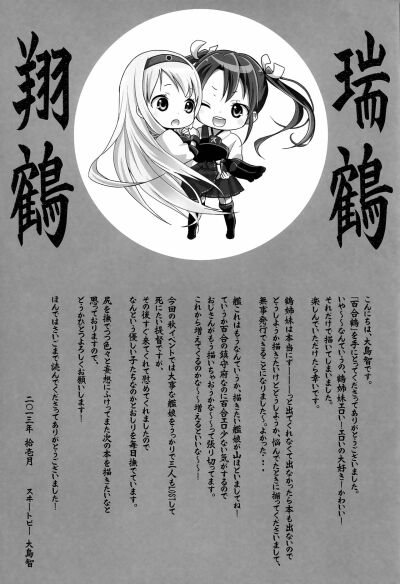 瑞鶴
翔鶴
こんにちは、大島智です。
「百合鶴」を手にとってくださってありがとうございます。
いや〜〜なんていうの、鶴姉妹エロい〜エロいの大好き！かわいい！
それだけで描いてしまいました。
楽しんでいただけたら幸いです。
鶴姉妹は本当にずーーーっと出てくれなくて出なかったら本も出ないので
どうしようか描きたいけどどうしようか、悩んでたときに揃ってくださいまして、
無事発行できることになりました。よかった・・・
艦これはもうなんていうか、描きたい艦娘が山ほどいましてね！
ていうか百合の鎮守府なのに百合エロ少ない気がするので
おじさんがもう描いちゃおうかな〜〜って張り切ってます。
これから増えてくるのかな〜〜増えるといいな〜〜！
今回の秋イベントでは大事な艦娘をうっかりで三人もLOSTして
死にたい提督ですが、
その後すぐ来てくれて慰めてくれましたので
なんという優しい子たちなのかとおしりを毎日撫でています。
尻を撫でつつ色々と妄想にふけってまた次の本を描きたいなと
思っておりますので、
どうかひとつよろしくお願いします！
ほんではさいごまで読んでくださってありがとうございました！
二〇十三年 拾壱月
スチートピー 大島智